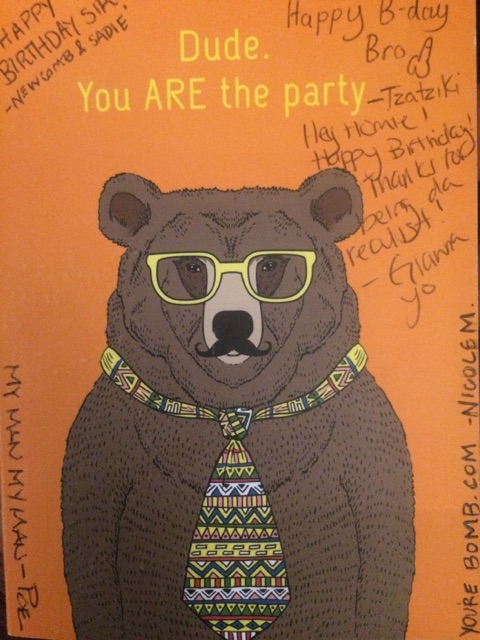 HAPPY
BIRTHDAY SIR!
-NEWCOMB & SADIE
Happy B-day
Bro
-Tzatziki
Dude.
You ARE the party
Hey Homie!
Happy Birthday!
Thanks for
being da
realist!
- Gianna
yo
MY MAN MY MAN - POE
YOU'RE BOMB.COM -NICOLE M.